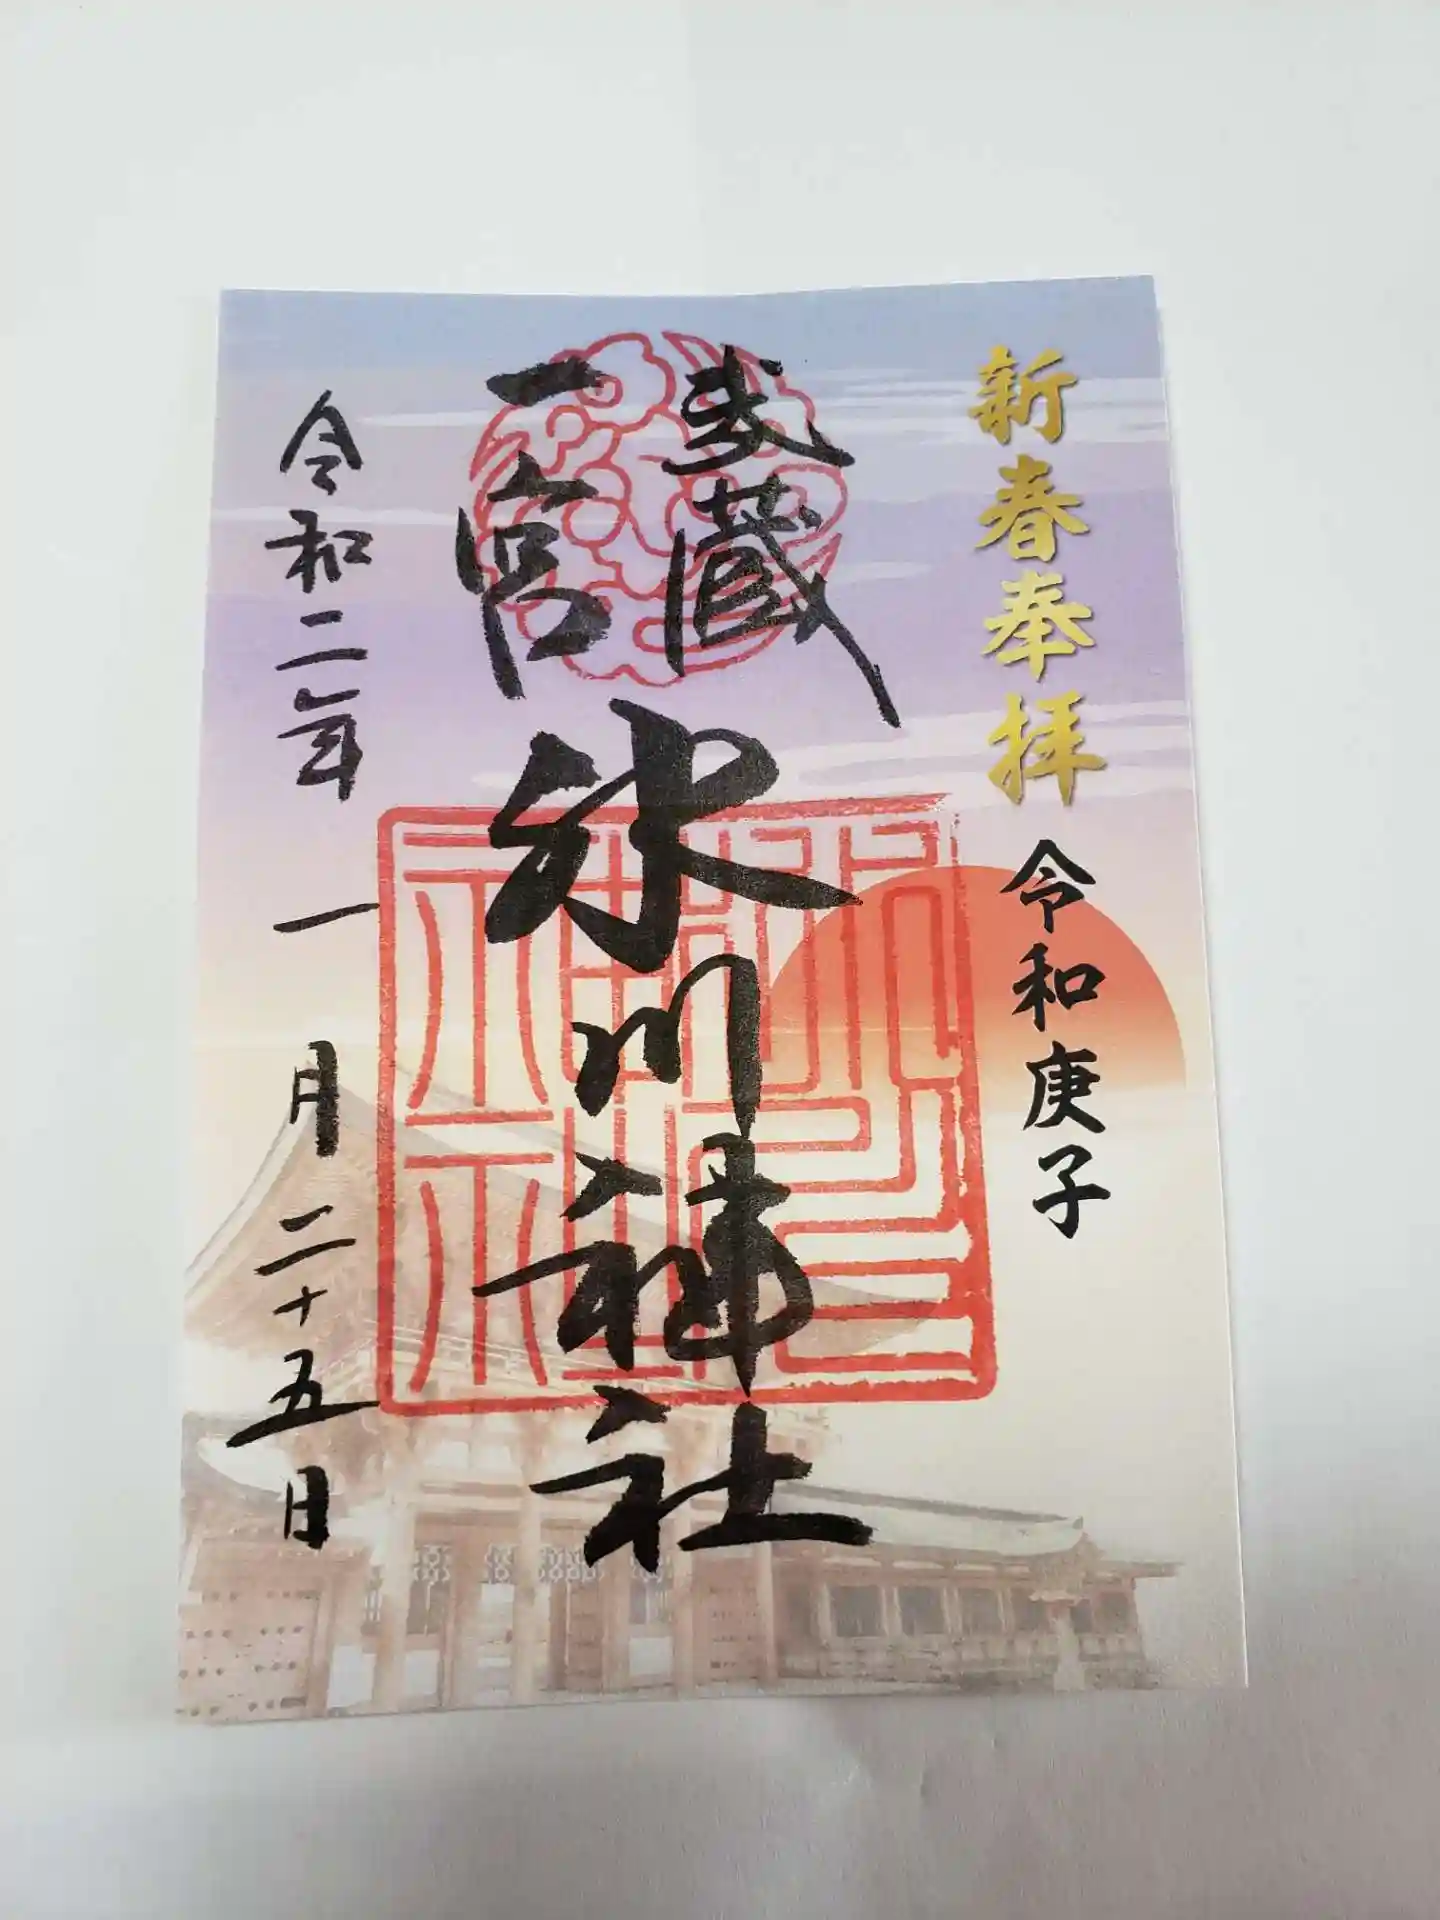 新春奉拝 令和庚子
武蔵
一宮
氷川神社
令和二年一月二十五日